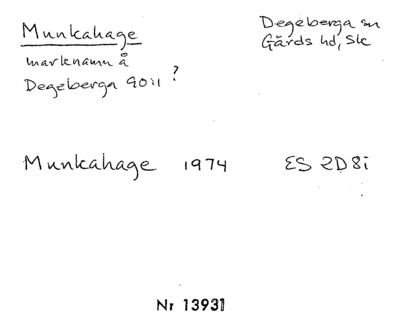 Munkahage
Degeberga sn
Gärds hd, Sk
marknamn å
Degeberga 90:1 ?
Munkahage 1974 ES 2D8i
Nr 13931